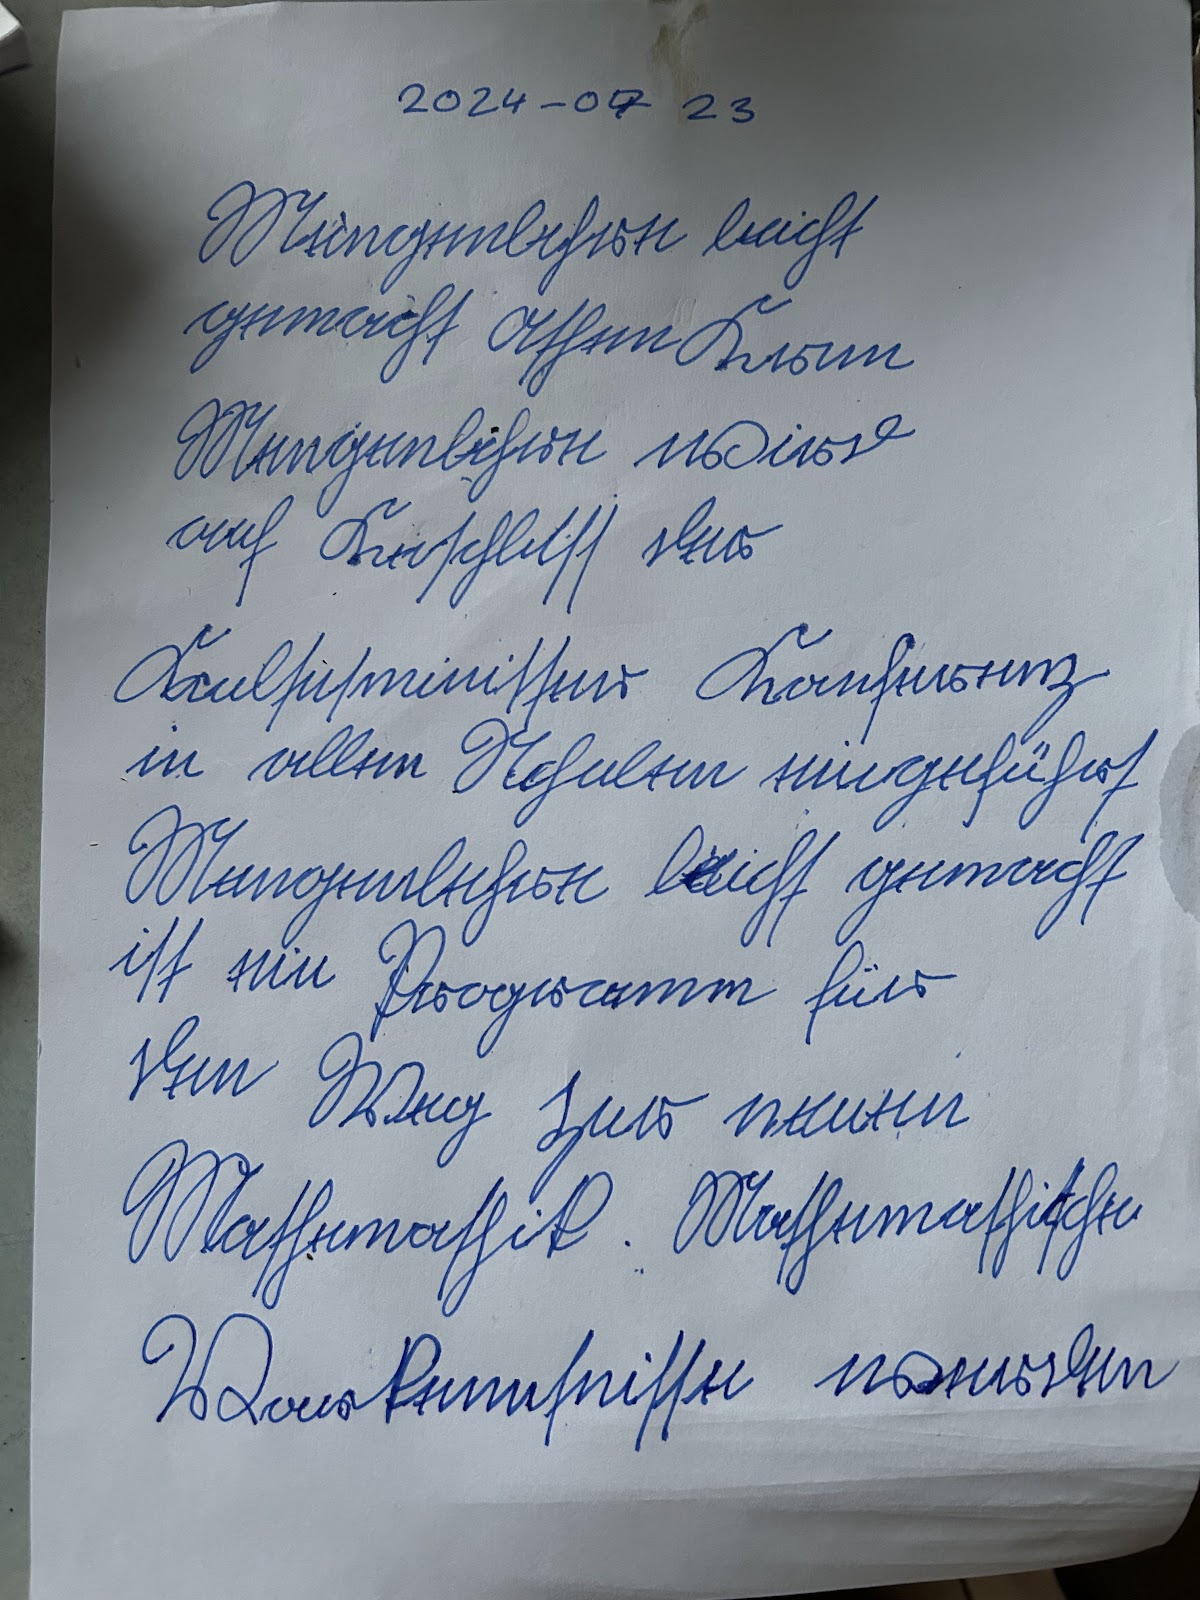 2024-07 23
Mengenlehre leicht
gemacht Athen Kron
Mengenlehre wird
auf Beschluss der
Kultusminister Konferenz
in allen Schulen eingeführt
Mengenlehre leicht gemacht
ist ein Programm für
den Weg zur neuen
Mathematik. Mathematische
Vorkenntnisse werden